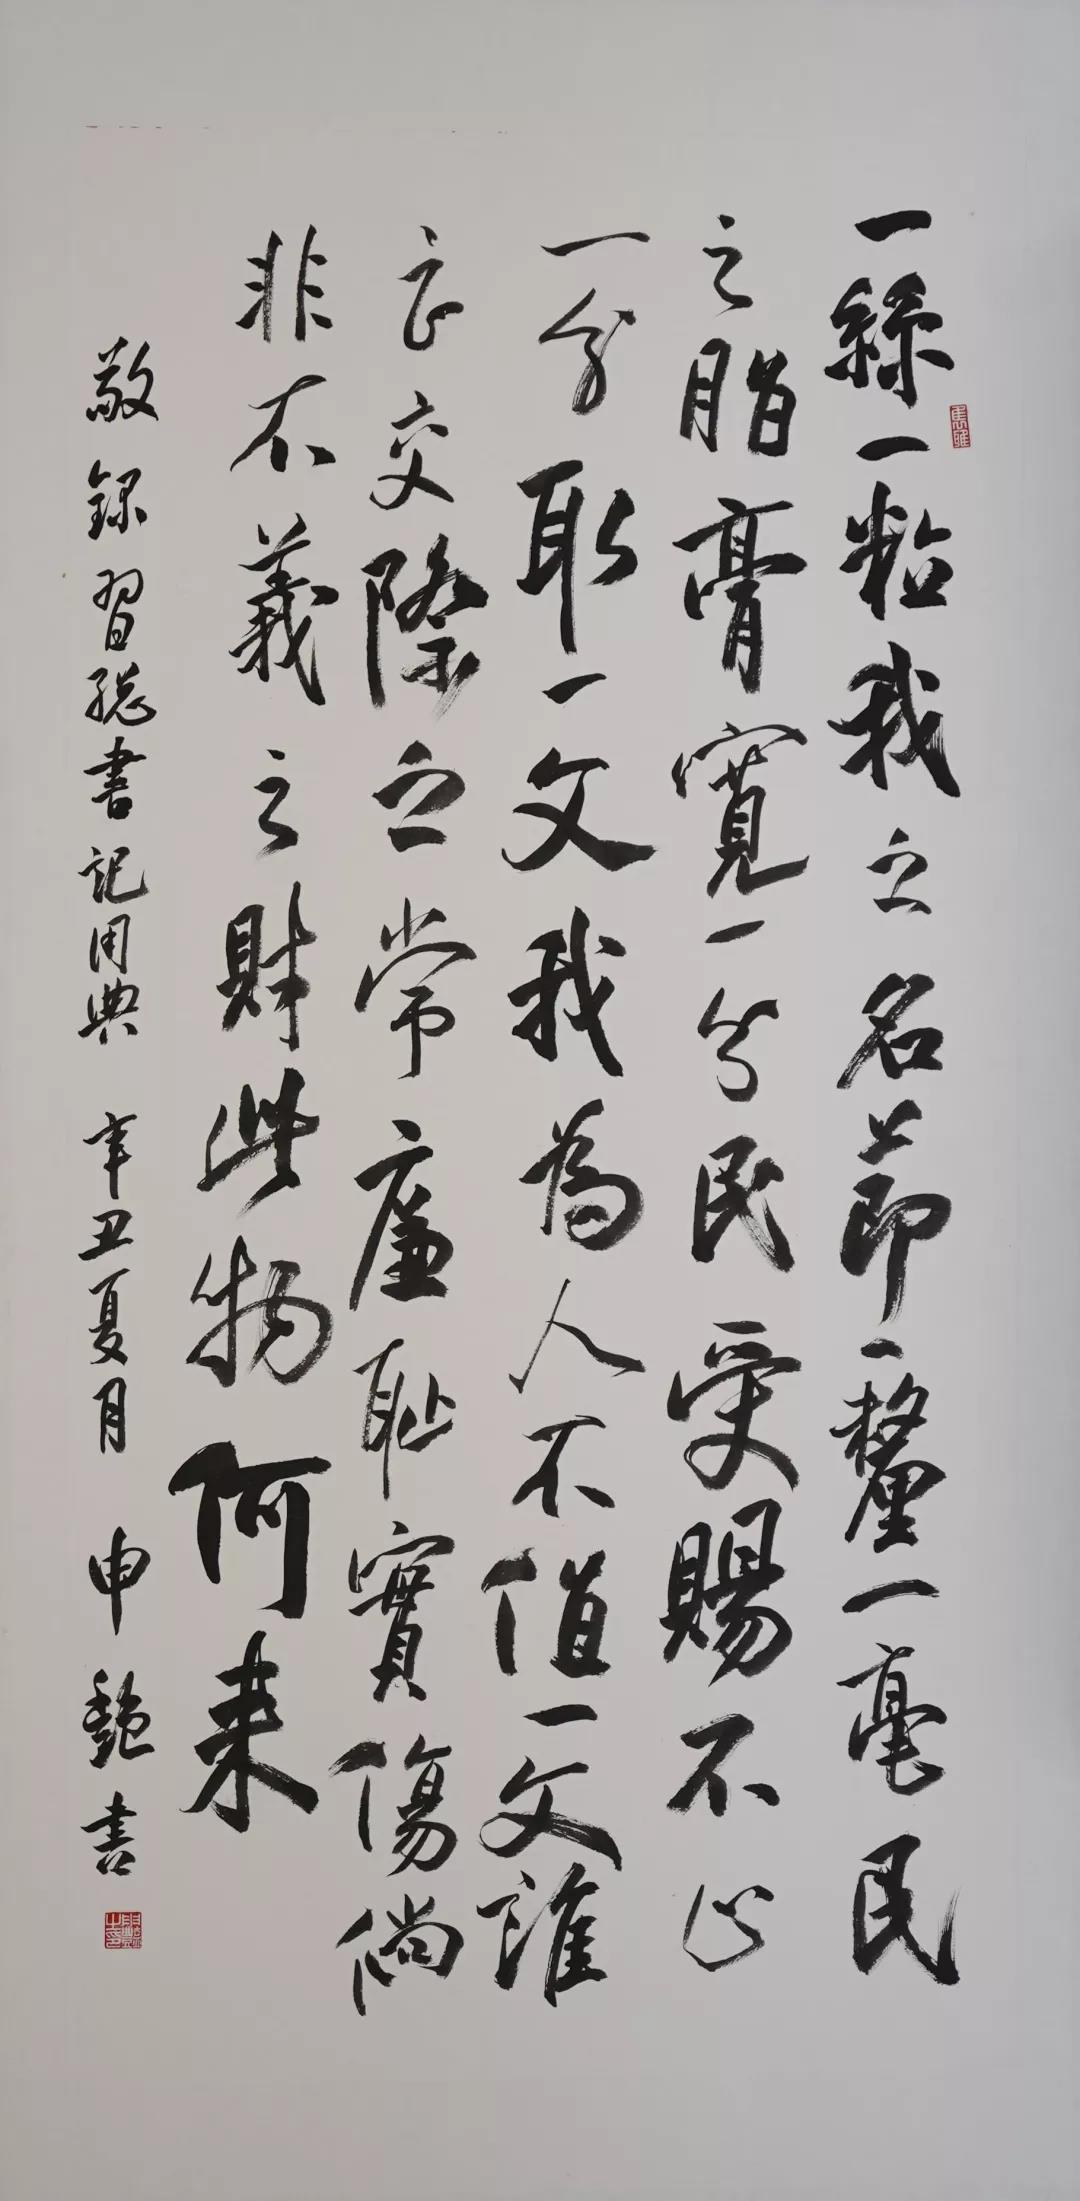 一絲一粒我之名節一釐一毫民
之脂膏寬一分民受賜不止
一分取一文我為人不值一文誰
云交際之常廉恥實傷倘
非不義之財此物何来
敬録習總書記用典 辛丑夏月 申艷書